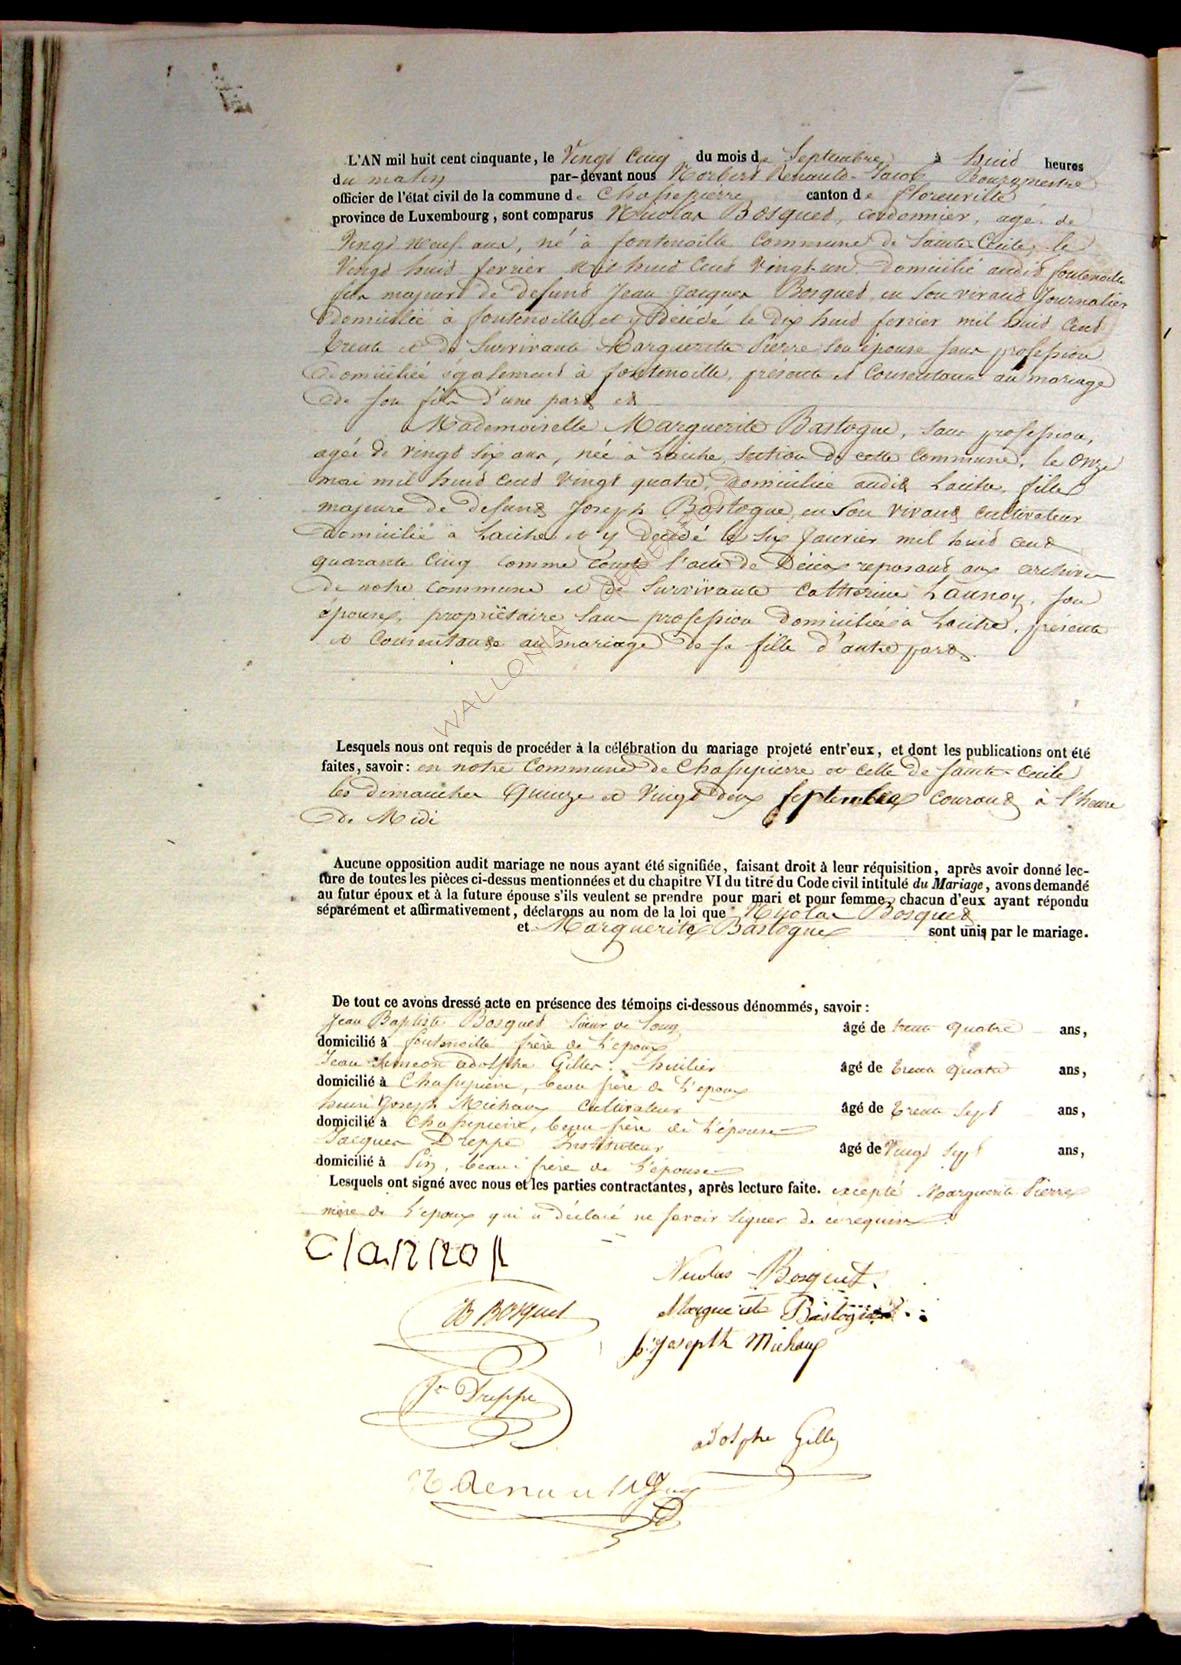 L'AN mil huit cent cinquante, le Vingt Cinq du mois de Septembre à huit heures
du matin par-devant nous Norbert Renauld-Jacob Bourgmestre
officier de l'état civil de la commune de Chassepierre canton de florenville
province de Luxembourg, sont comparus Nicolas Bosquet, cordonnier, agé de
Vingt neuf ans, né à fontenoille Commune de Sainte Cécile, le
Vingt huit fevrier mil huit Cent Vingt un, domicilié audit fontenoille
fils majeur de defunt Jean Jacques Bosquet, en son vivant Journalier
domicilié à fontenoille, et y décédé le dix huit fevrier mil huit Cent
trente et de Survivante Marguerite Pierre son épouse sans profession
domiciliée également à fontenoille, présente et Consentante au mariage
de son fils d'une part et
Mademoiselle Marguerite Bastogne, sans profession,
agée de vingt six ans, née à Laiche, section de cette Commune, le onze
mai mil huit cent Vingt quatre, domiciliée audit Laiche, fille
majeure de defunt Joseph Bastogne, en son vivant cultivateur
domicilié à Laiche et y décédé le six Janvier mil huit cent
quarante Cinq comme Conste l'acte de Décès reposant aux archives
de notre commune et de Survivante Catherine Launoy, son
épouse, propriétaire sans profession domiciliée à Laiche, présente
et Consentante au mariage de sa fille d'autre part.
Lesquels nous ont requis de procéder à la célébration du mariage projeté entr'eux, et dont les publications ont été
faites, savoir: en notre Commune de Chassepierre et celle de Sainte-Cecile
les dimanches Quinze et Vingt deux Septembre courant à l'heure
de Midi
Aucune opposition audit mariage ne nous ayant été signifiée, faisant droit à leur réquisition, après avoir donné lec-
ture de toutes les pièces ci-dessus mentionnées et du chapitre VI du titre du Code civil intitulé du Mariage, avons demandé
au futur époux et à la future épouse s'ils veulent se prendre pour mari et pour femme, chacun d'eux ayant répondu
séparément et affirmativement, déclarons au nom de la loi que Nicolas Bosquet
et Marguerite Bastogne sont unis par le mariage.
De tout ce avons dressé acte en présence des témoins ci-dessous dénommés, savoir:
Jean Baptiste Bosquet Sieur de Long âgé de trente quatre ans,
domicilié à fontenoille frère de l'epoux
Jean Simeon adolphe Gilles, huilier âgé de trente Quatre ans,
domicilié à Chassepierre, beau frère de l'epoux
henri Joseph Michaux Cultivateur âgé de trente Sept ans,
domicilié à Chassepierre, beau frère de l'épouse
Jacques Dreppe Instituteur âgé de Vingt Sept ans,
domicilié à Pin, beau frère de l'épouse
Lesquels ont signé avec nous et les parties contractantes, après lecture faite. excepté Marguerite Pierre
mère de l'epoux qui a déclaré ne savoir signer de ce requise.
C lannoy
Nicolas Bosquet
JB Bosquet
Marguerite Bastogne
h. Joseph Michaux
Jn Dreppe
adolphe Gilles
N Renauld Jacob
WALLONIA